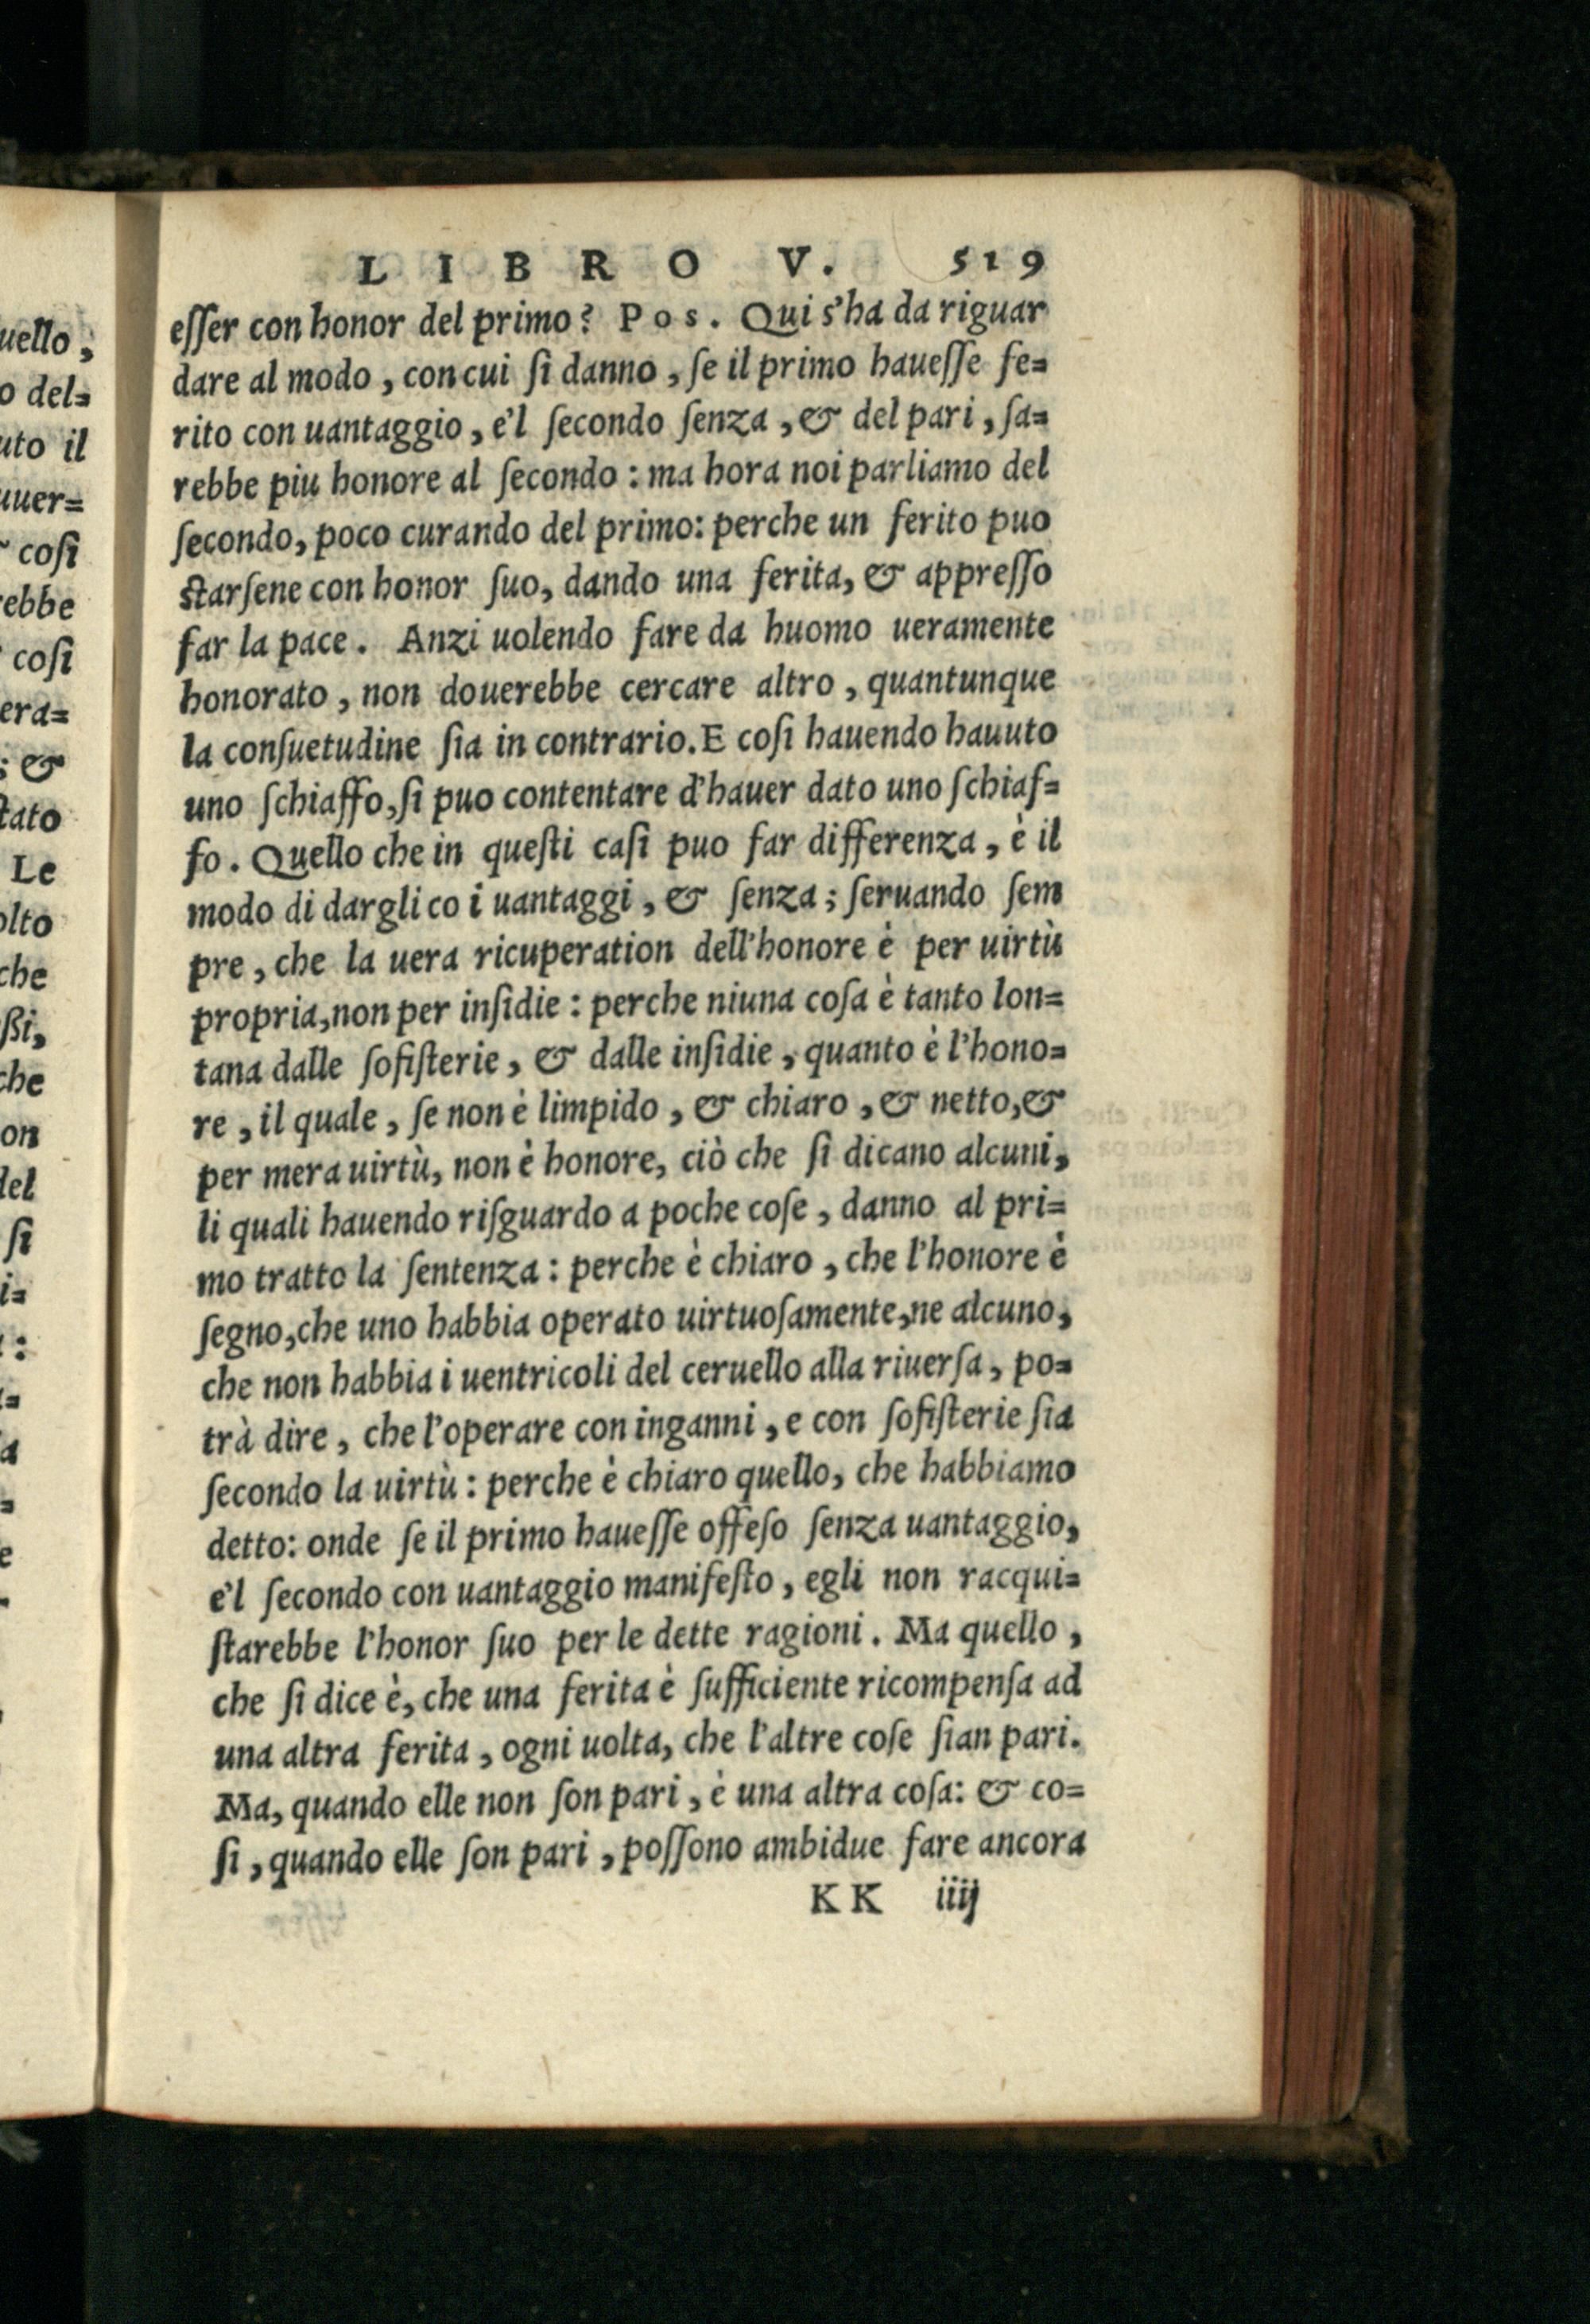 uello,
o del=
uto il
uuer=
cosi
rebbe
cosi
era=
; &
tato
Le
olto
che
ßi,
che
on
del
si
i=
:
LIBRO V. 519
eſſer con honor del primo? Pos. Qui s'ha da riguar
dare al modo, con cui ſi danno, ſe il primo haueſſe fe=
rito con uantaggio, e'l ſecondo ſenza, & del pari, ſa=
rebbe piu honore al ſecondo: ma hora noi parliamo del
ſecondo, poco curando del primo: perche un ferito puo
ſtarſene con honor ſuo, dando una ferita, & appreſſo
far la pace. Anzi uolendo fare da huomo ueramente
honorato, non douerebbe cercare altro, quantunque
la conſuetudine ſia in contrario. E coſi hauendo hauuto
uno ſchiaffo, ſi puo contentare d'hauer dato uno ſchiaf=
fo. Quello che in queſti caſi puo far differenza, è il
modo di dargli co i uantaggi, & ſenza; ſeruando ſem
pre, che la uera ricuperation dell'honore è per uirtù
propria, non per inſidie: perche niuna coſa è tanto lon=
tana dalle ſofiſterie, & dalle inſidie, quanto è l'hono=
re, il quale, ſe non è limpido, & chiaro, & netto, &
per mera uirtù, non è honore, ciò che ſi dicano alcuni,
li quali hauendo riſguardo a poche coſe, danno al pri=
mo tratto la ſentenza: perche è chiaro, che l'honore è
ſegno, che uno habbia operato uirtuoſamente, ne alcuno,
che non habbia i uentricoli del ceruello alla riuerſa, po=
trà dire, che l'operare con inganni, e con ſofiſterie ſia
ſecondo la uirtù: perche è chiaro quello, che habbiamo
detto: onde ſe il primo haueſſe offeſo ſenza uantaggio,
e'l ſecondo con uantaggio manifeſto, egli non racqui=
ſtarebbe l'honor ſuo per le dette ragioni. Ma quello,
che ſi dice è, che una ferita è ſufficiente ricompenſa ad
una altra ferita, ogni uolta, che l'altre coſe ſian pari.
Ma, quando elle non ſon pari, è una altra coſa: & co=
ſi, quando elle ſon pari, poſſono ambidue fare ancora
KK iiij